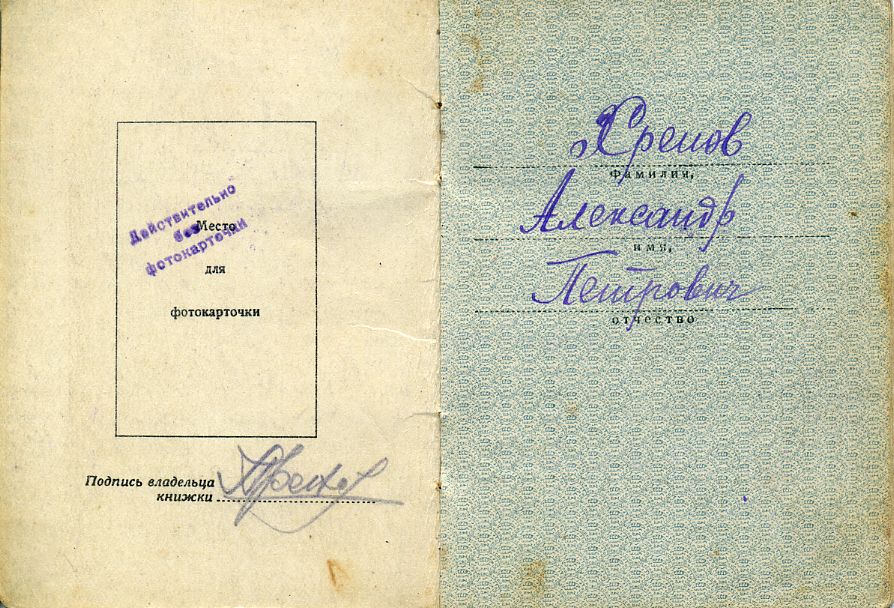 Действительно
без
фотокарточки
Место
для
фотокарточки
Подпись владельца
книжки
Хренов
Фамилия,
Александр
имя,
Петрович
отчество